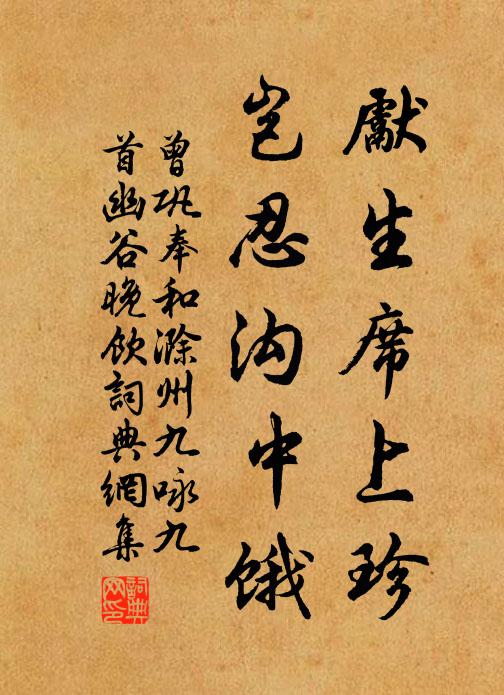 獻生席上珍
豈忍沟中餓
曾巩奉和滁州九咏九
首幽谷晚饮詞典網集
詞典网印